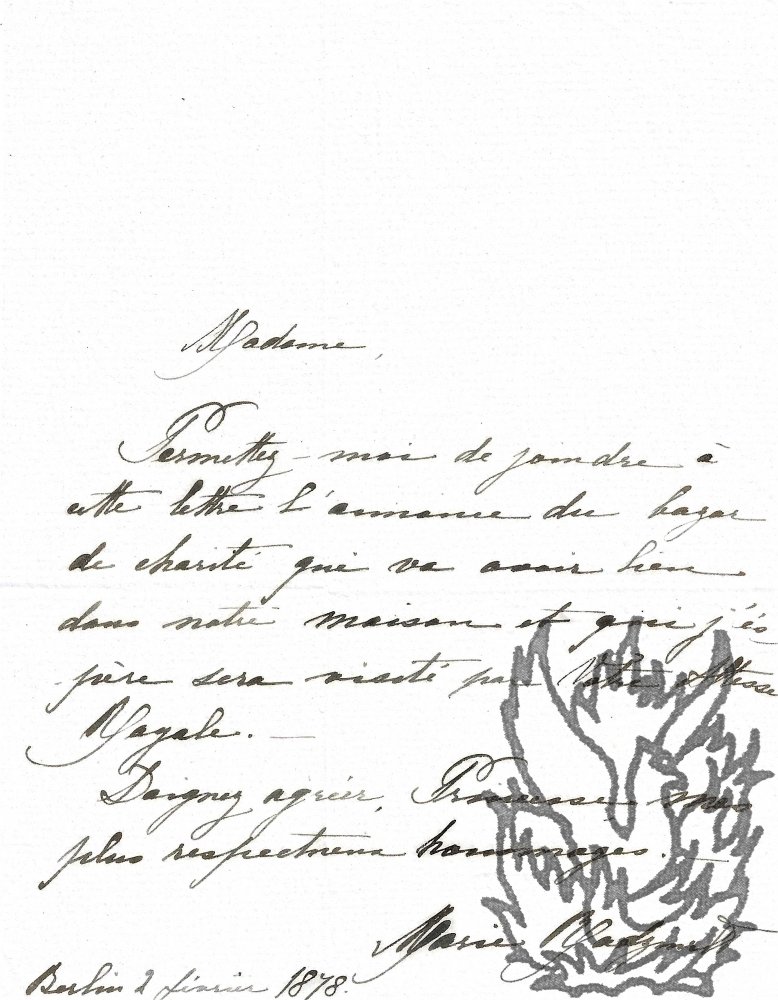 Madame,
Permettez-moi de joindre à
cette lettre l'annonce du bazar
de charité qui va avoir lieu
dans notre maison et qui j'es
père sera visité par Votre Altesse
Royale. —
Daignez agréer, Princesse, mes
plus respectueux hommages. —
Marie
Berlin 2 février 1878.